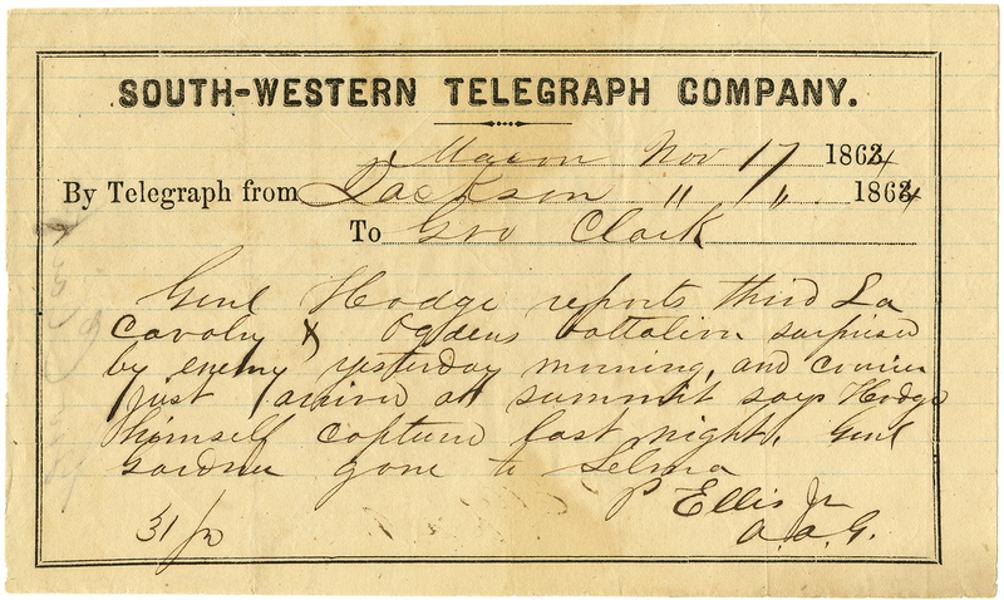 SOUTH-WESTERN TELEGRAPH COMPANY.
Macon Nov 17 1864
By Telegraph from Jackson " 1 " 1864
To Gov Clark
Genl Hodge reports third La
Cavalry & Ogdens battalion surprised
by enemy yesterday morning, and courier
just arrived at summit says Hodge
himself captured last night. Genl
Gardner gone to Selma
P Ellis Jr
A.A.G.
31